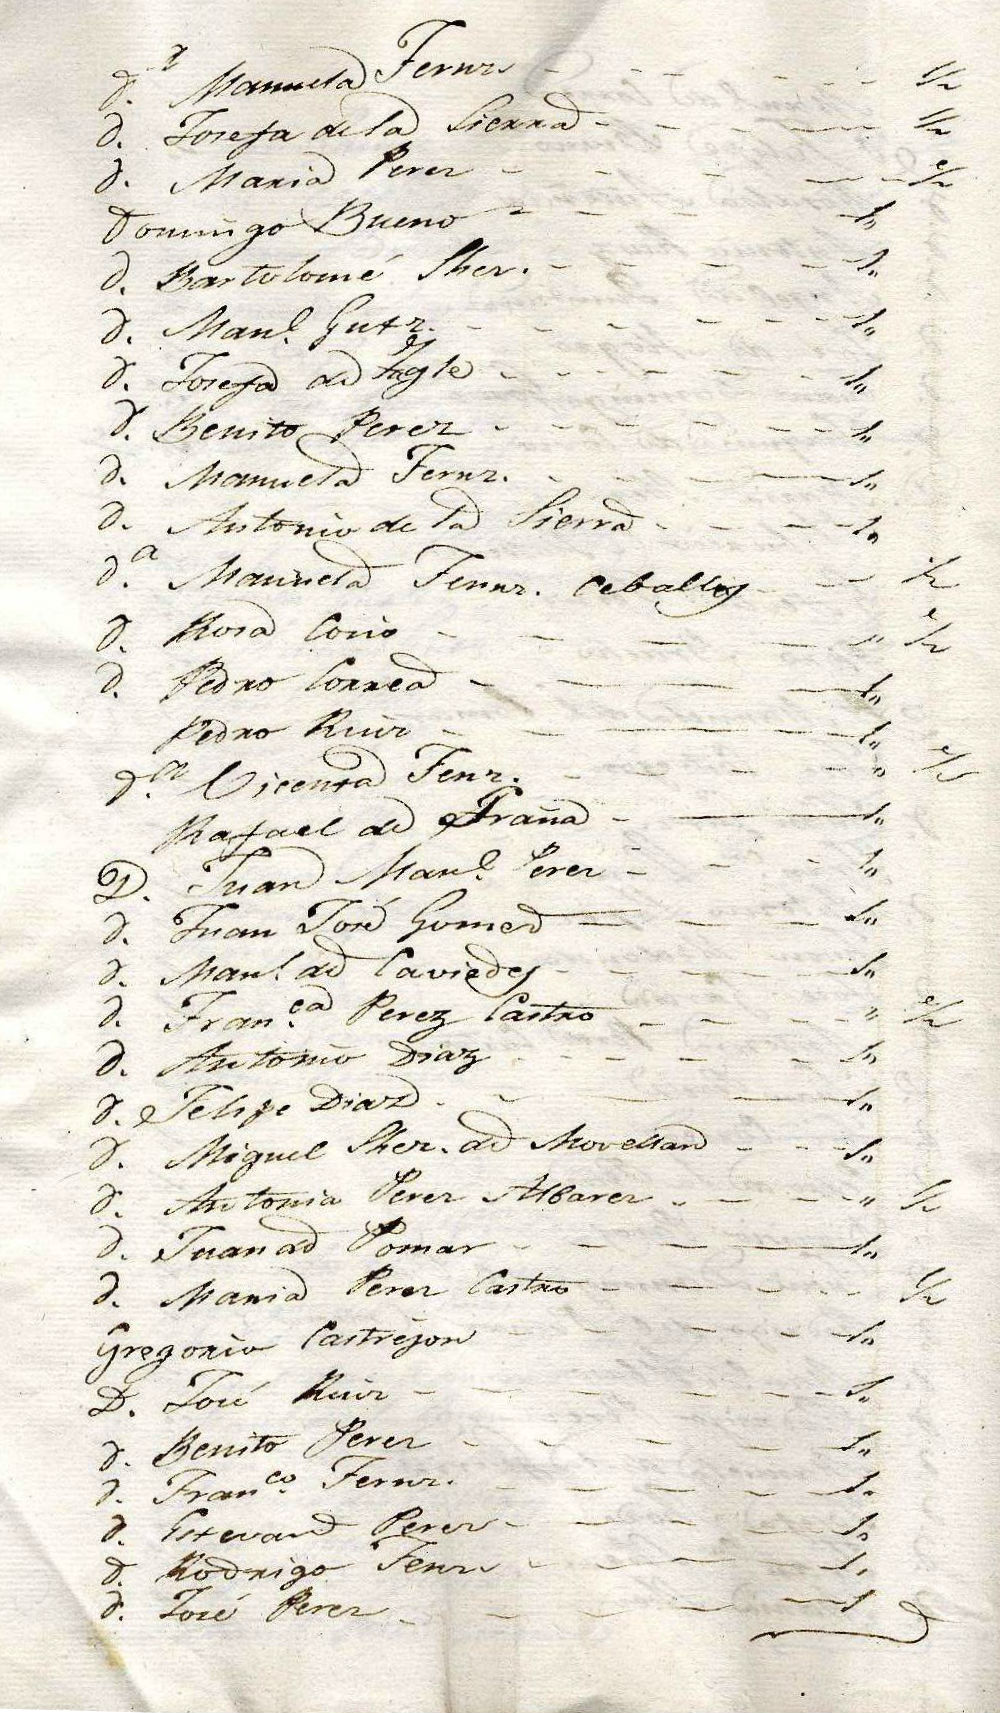 d.ª Manuela Fernz - - - - - ½
d. Josefa de la Sierra - - - - ½
d. Maria Perez - - - - - ½
Domingo Bueno - - - - 1,,
d. Bartolomé Sher. - - - - 1,,
d. Man.l Gutz. - - - - - 1,,
d. Josefa de Tagle - - - - - 1,,
d. Benito Perez - - - - - 1,,
d. Manuela Fernz. - - - - 1,,
d. Antonio de la Sierra - - - - 1,,
d.ª Manuela Fernz. Ceballos - - - ½
d. Rosa Cosio - - - - ,, ½
d. Pedro Correa - - - - 1,,
Pedro Ruiz - - - - 1,,
d.ª Vicenta Fernz. - - - - ,,
Rafael de Traña - - 1,,
D. Juan Man.l Perez - - - - 1,,
d. Juan José Gomez - - - 1,,
d. Man.l de Caviedes - - - - 1,,
d. Fran.ca Perez Castro - - - - ,, ½
d. Antonio Diaz - - - - - 1,,
d. Felipe Diaz - - - - 1,,
d. Miguel Sher. de Movellan - - - 1,,
d. Antonia Perez Albarez - - - - ,, ½
d. Juan de Pomar - - - - 1,,
d. Maria Perez Castro - - - - - ½
Gregorio Castrejon - - - - - 1,,
D. José Ruiz - - - - - 1,,
d. Benito Perez - - - - - 1,,
d. Fran.co Fernz. - - - - 1,,
d. Estevan Perez - - - - 1,,
d. Rodrigo Fernz - - - - 1,,
d. José Perez - - - - 1